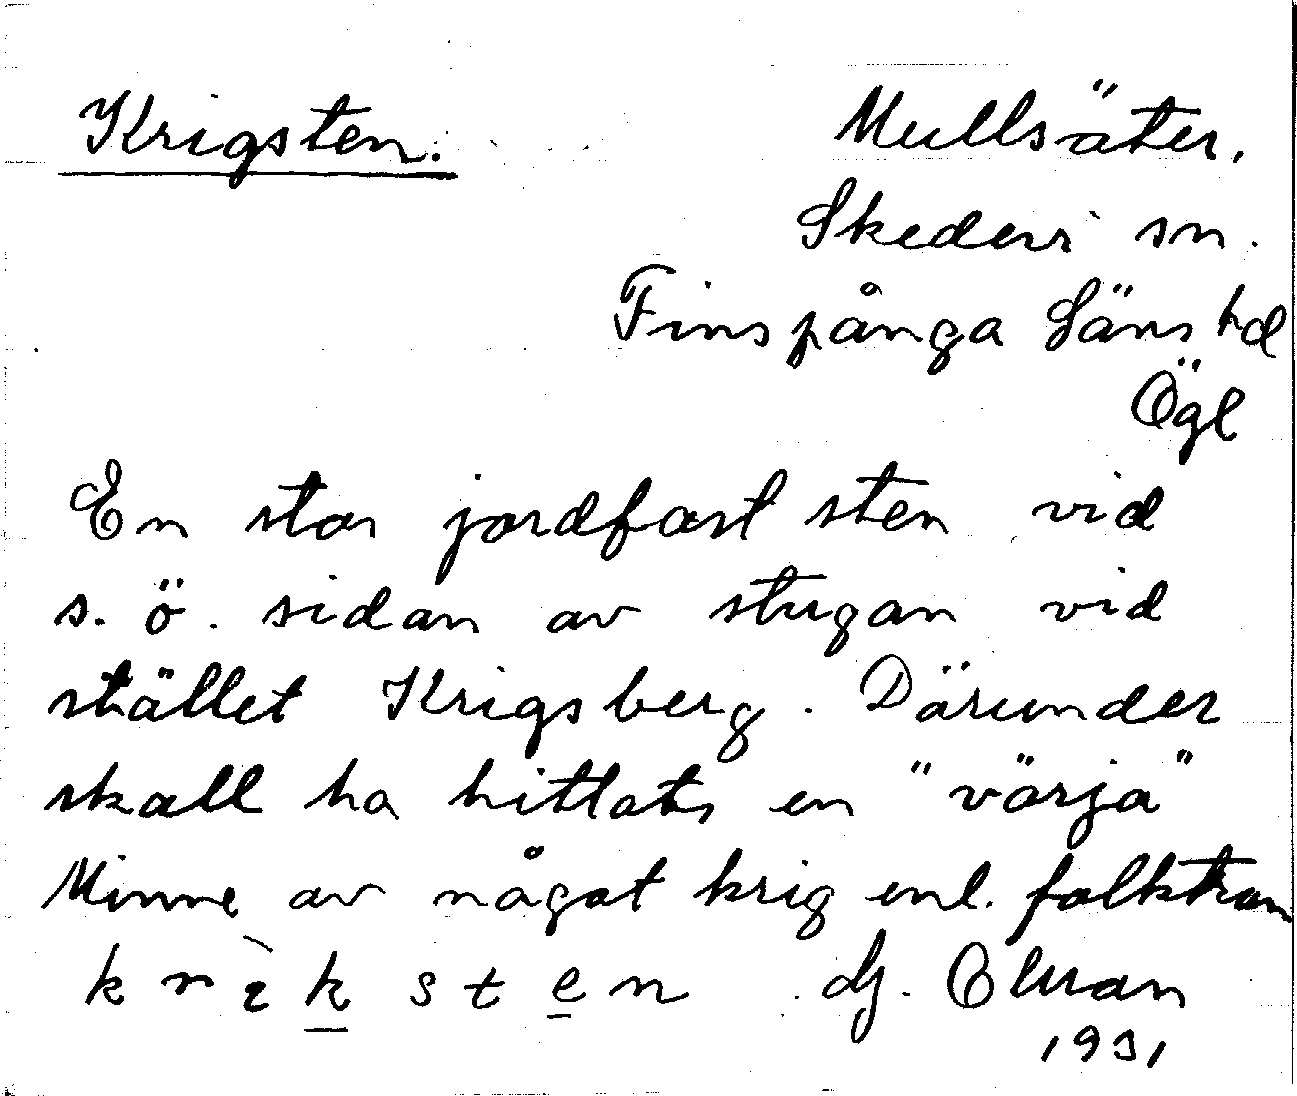 Krigsten.
Mullsäter.
Skedevi sn.
Finspånga läns hd
Ögl
En stor jordfast sten vid
s. ö. sidan av stugan vid
stället Krigsberg. Därunder
skall ha hittats en "värja"
Minne av något krig enl. folktron
k r ì k s t e n
1931